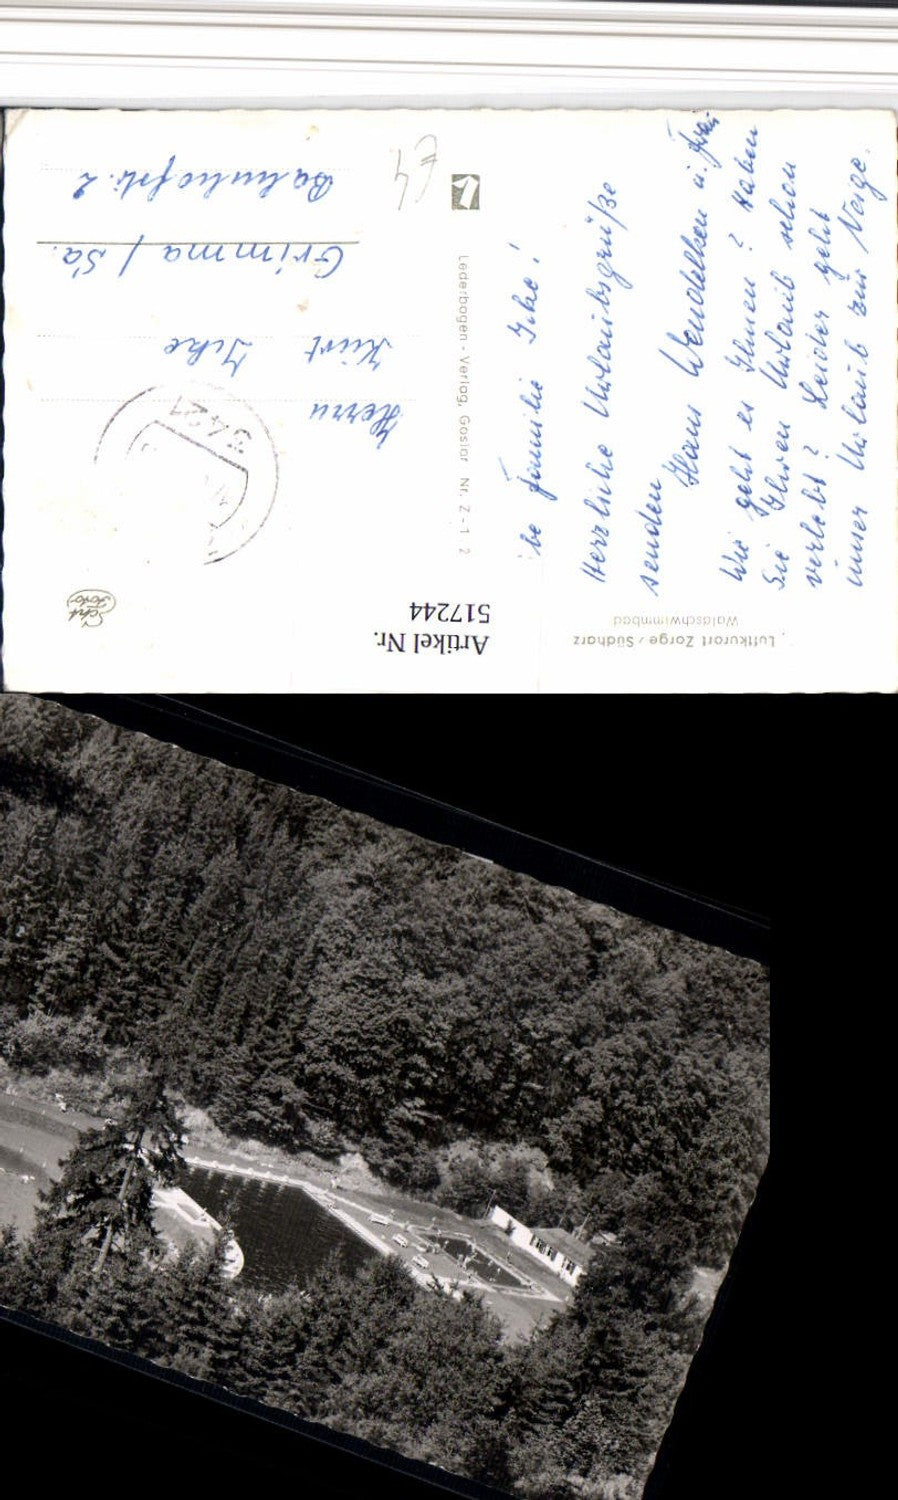 Luftkurort Zorge / Südharz
Waldschwimmbad
Artikel Nr.
517244
Lederbogen - Verlag, Goslar Nr. Z - 1 - 2
Familie Ihe!
Herzliche Urlaubsgrüße
senden
Hans Wendelken u. Frau
Wie geht es Ihnen? Haben
Sie Ihren Urlaub schon
verlebt? Leider geht
unser Urlaub zur Neige.
Herrn
Kurt Ihe
Grimma / Sa.
Bahnhofstr. 2
3421
£4
Foto